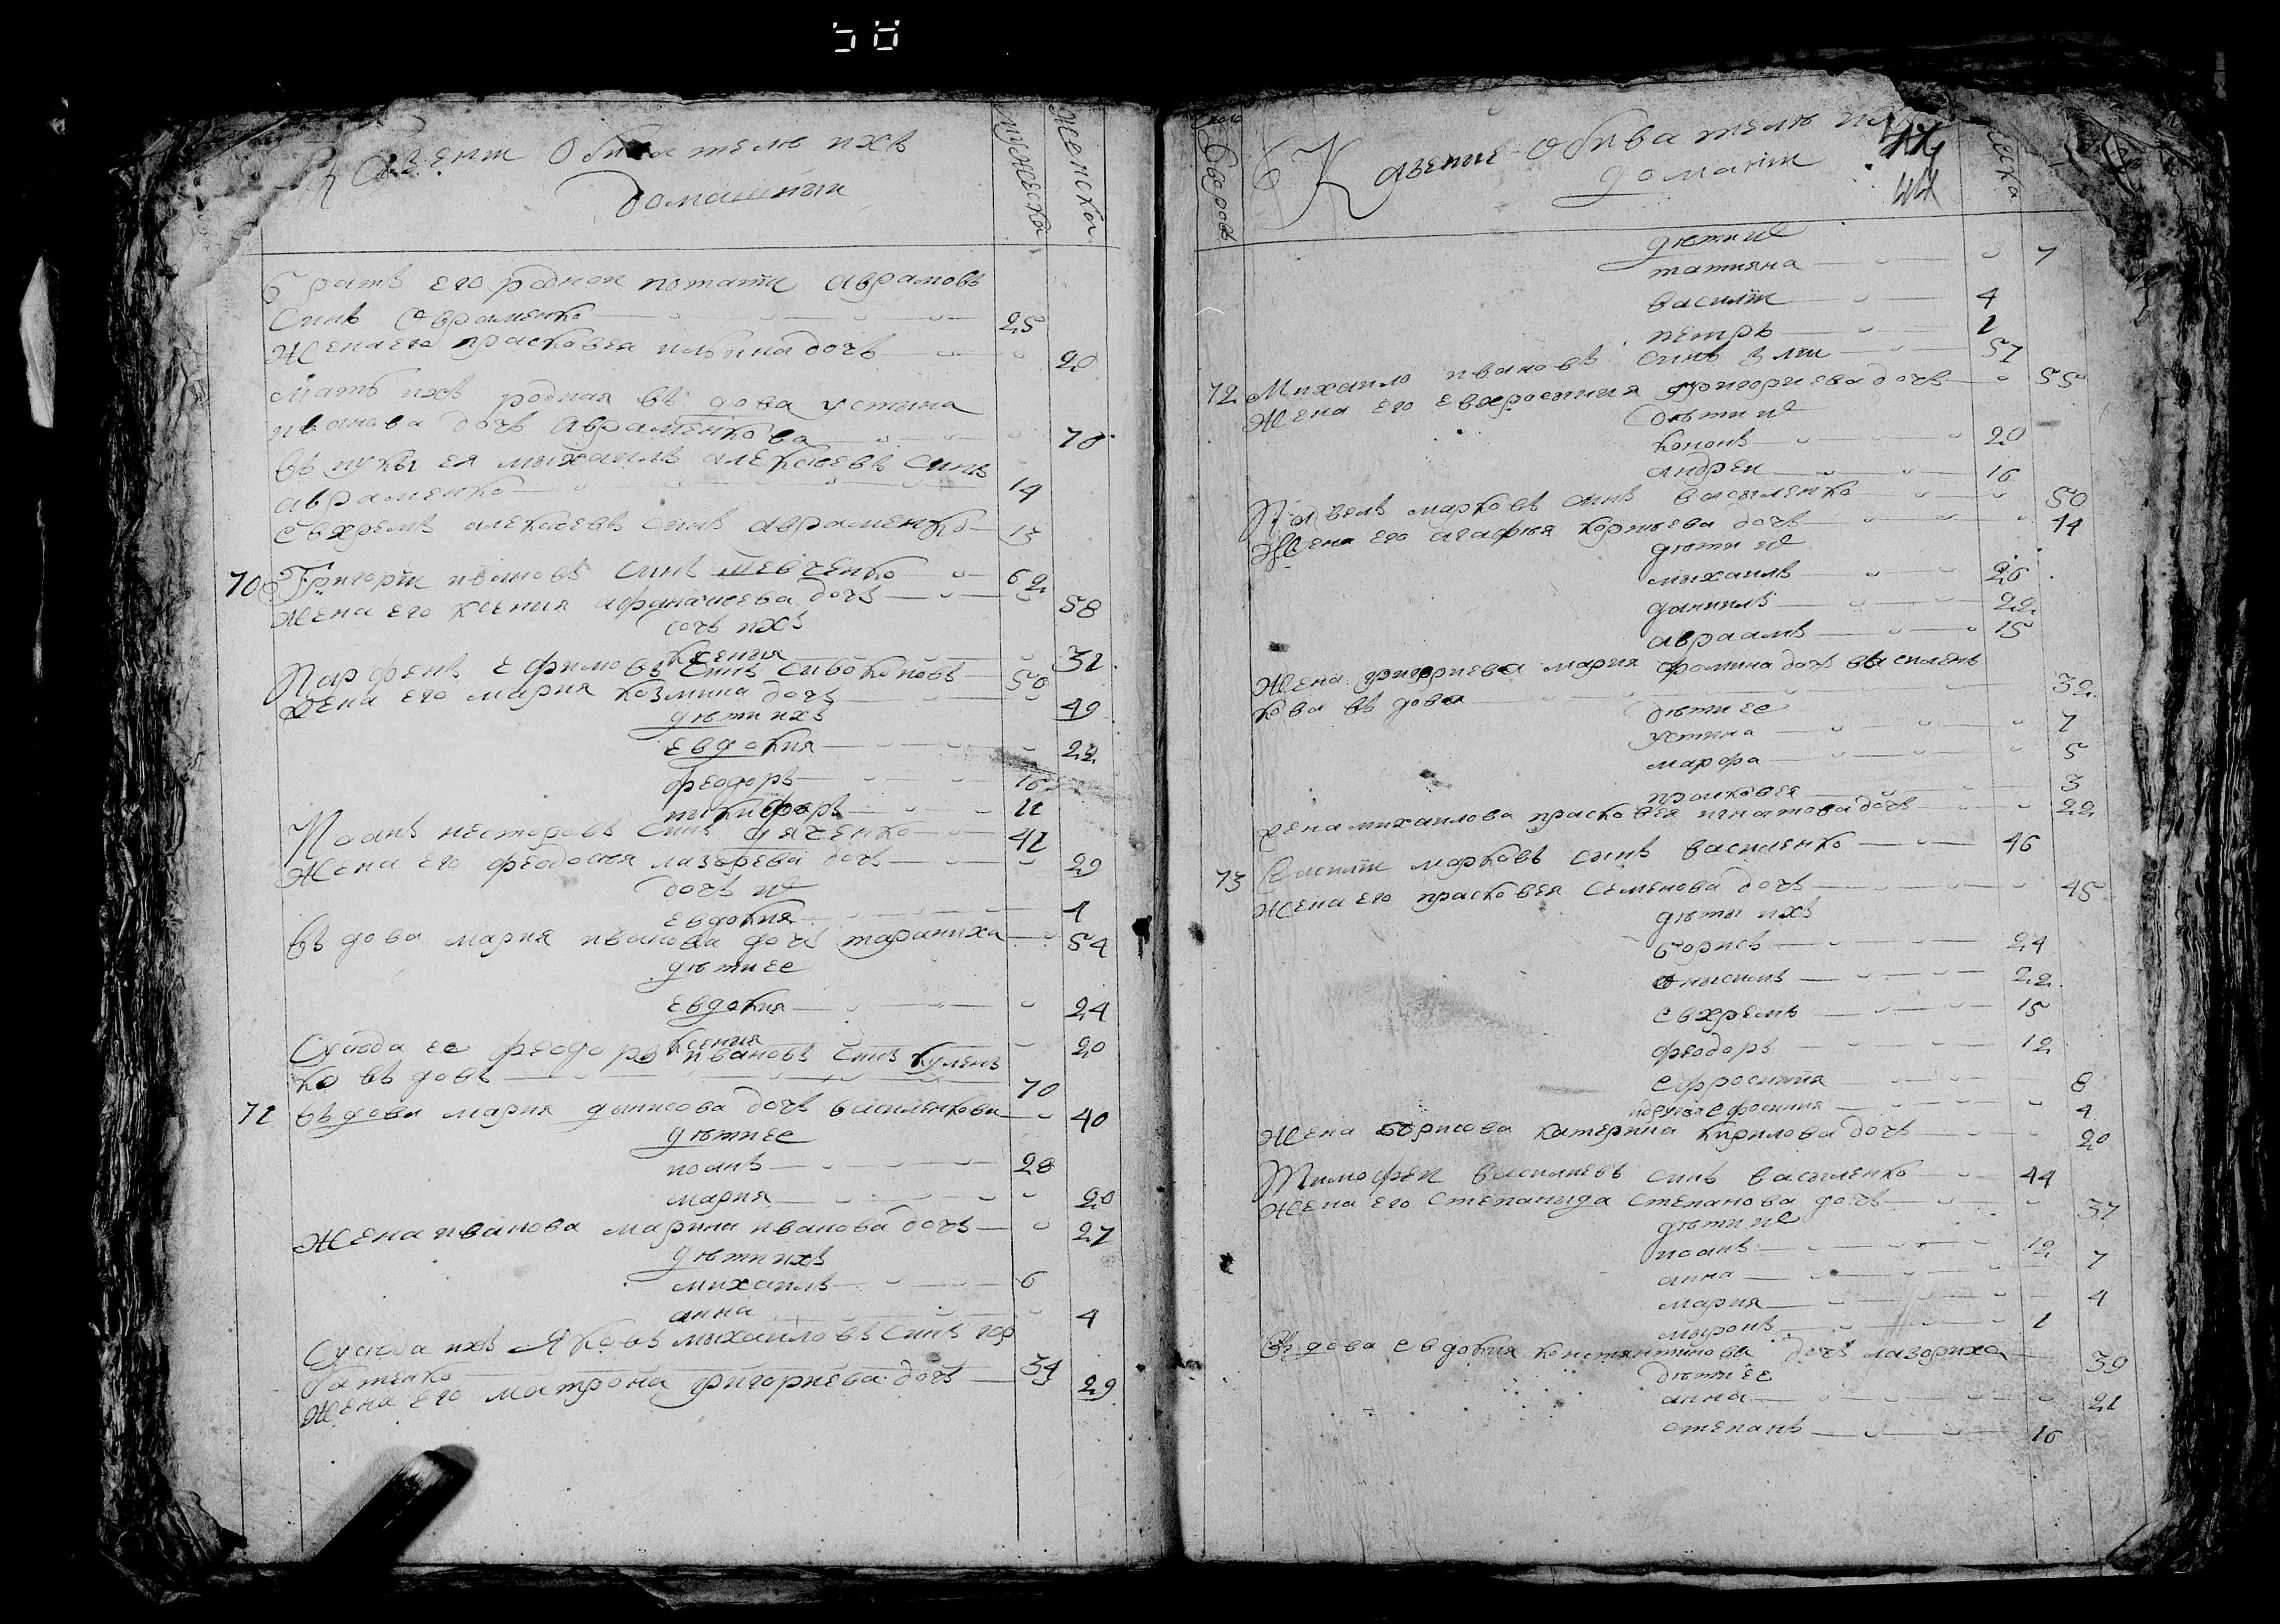 58
Казенни Обивателе ихъ
Домашнии
мужеска
женска
Братъ его родной потапи аврамовъ
Синъ Овраменко 25
Жена его прасковея ильина дочъ 20
Мать ихъ родная въдова устина
иванова дочъ Авраменкова 70
въ нукы ея мыхаилъ алексеевъ синъ
авраменко 14
Евхремъ алексеевъ синъ авраменко 13
70 Григории ивановъ синъ шевченко 62
Жена его ксения афанасиева дочъ 58
дочъ ихъ
ксения 31
Парфенъ Ефимовъ синъ Сивоконовъ 50
Жена его мария козмина дочъ 49
дѣти ихъ
евдокия 22
феодоръ 16
никифоръ 11
Иоанъ несторовъ синъ дяченко 41
Жена его феодосия лазорева дочъ 29
дочъ их
евдокия 1
въдова мария иванова дочъ тараниха 54
дѣти ее
евдокия 24
ксения 20
Сусѣда ее феодоръ ивановъ синъ куленъ
ко въдовъ 70
71 въдова мария данисова дочъ василенкова 40
дѣти ее
иоанъ 28
мария 20
Жена иванова марина иванова дочъ 27
дѣти ихъ
михаилъ 6
анна 4
Сусѣда ихъ Яковъ мыхаиловъ синъ гор
батенко 34
Жена его матрона григориева дочъ 29
Число
Дворовъ
Казение обивателе
домании
44
44
дѣти их
татияна 7
василии 4
петръ 1
72 Михаило ивановъ синъ 57
Жена его евфросиния григориева дочъ 55
Дѣти их
кононъ 20
андреи 16
Павелъ марковъ синъ васыленко 50
Жена его агафия корниева дочъ 44
дѣти их
мыхаилъ 26
даниилъ 22
авраамъ 15
Жена григориева мария фомина дочъ василенъ
кова въдова 32
дѣти ее
устина 7
марфа 5
прасковея 3
Жена михаилова прасковея игнатова дочъ 22
73 Василии марковъ сынъ василенко 46
Жена его прасковея Семенова дочъ 45
дѣты ихъ
борисъ 24
онысимъ 22
евхремъ 15
феодоръ 12
ефросиния 8
и другая ефросиния 4
Жена борисова катерина кирилова дочъ 20
Тимофеи василиевъ синъ васыленко 44
Жена его степанида степанова дочъ 37
дѣти их
иоанъ 12
анна 7
мария 4
мыронъ 1
Въдова евдокия константинова дочъ лазориха 39
дѣти ее
анна 21
степанъ 16